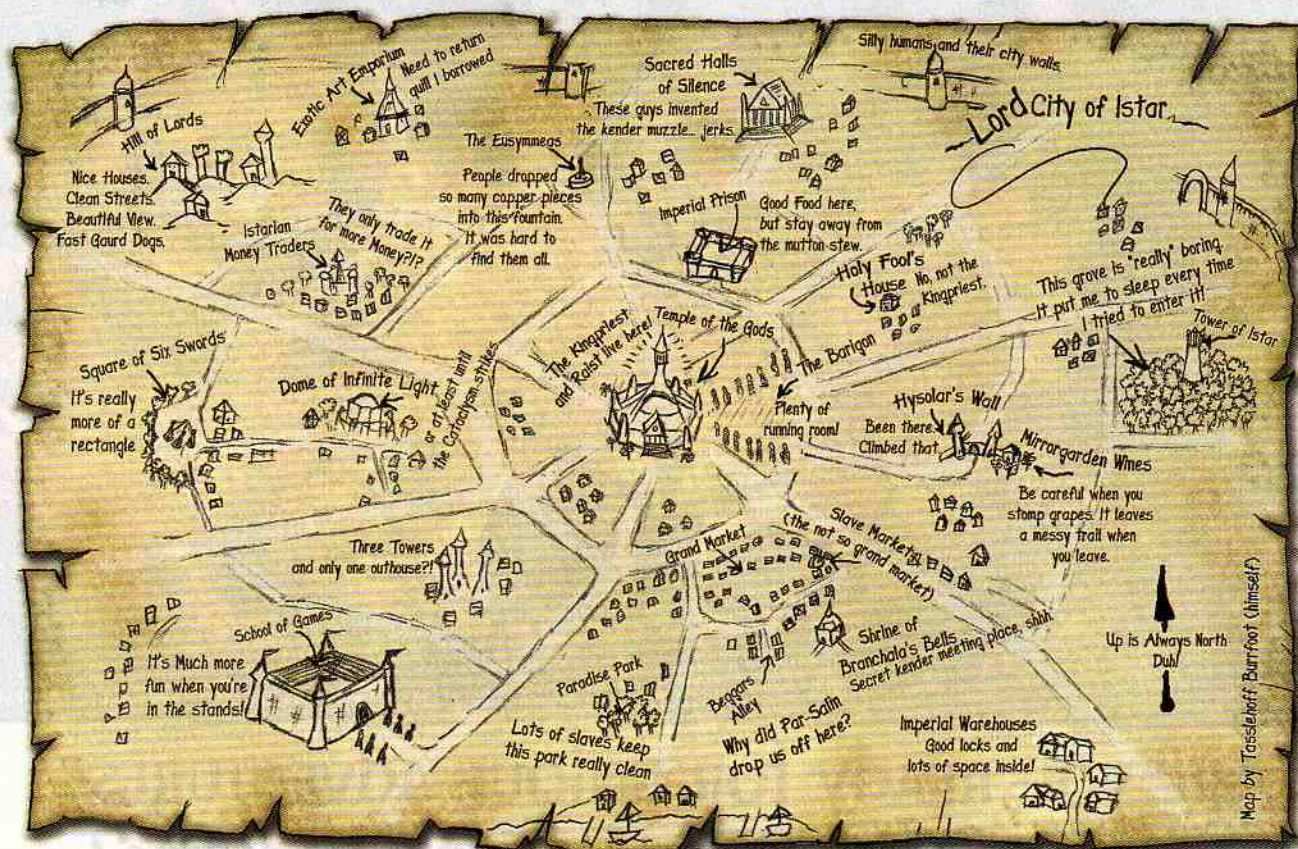 Silly humans and their city walls.
Lord City of Istar
Exotic Art Emporium
Need to return
quill I borrowed
Sacred Halls
of Silence
These guys invented
the kender muzzle... jerks.
Hill of Lords
Nice Houses.
Clean Streets.
Beautiful View.
Fast Gaurd Dogs.
The Eusymmeas
People dropped
so many copper pieces
into this fountain.
It was hard to
find them all.
Imperial Prison
Good Food here,
but stay away from
the mutton stew.
Istarian
Money Traders
They only trade it
for more Money?!?
Holy Fool's
House
No, not the
Kingpriest.
This grove is "really" boring.
It put me to sleep every time
I tried to enter it!
Tower of Istar
Square of Six Swords
It's really
more of a
rectangle
Dome of Infinite Light
or at least until
the Cataclysm strikes
The Kingpriest
and Raist live here!
Temple of the Gods
The Barigon
Plenty of
running room!
Hysolar's Wall
Been there.
Climbed that.
Mirrorgarden Wines
Be careful when you
stomp grapes. It leaves
a messy trail when
you leave.
Three Towers
and only one outhouse?!
Grand Market
Slave Market
(the not so grand market)
School of Games
It's Much more
fun when you're
in the stands!
Paradise Park
Lots of slaves keep
this park really clean
Beggars
Alley
Why did Par-Salin
drop us off here?
Shrine of
Branchala's Bells
Secret kender meeting place, shhh.
Imperial Warehouses
Good locks and
lots of space inside!
Up is Always North
Duh!
Map by Tasslehoff Burrfoot (himself)